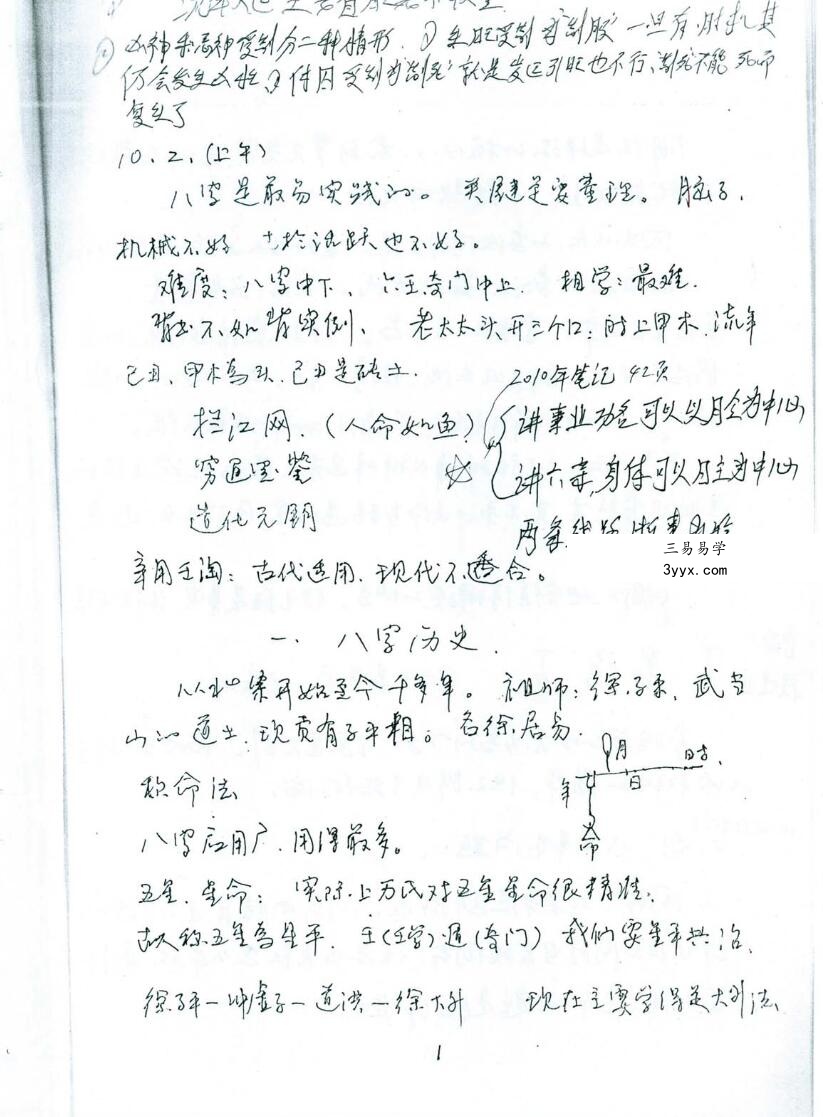 凶神和忌神受制分二种情形.①衰旺受制为"制服"一旦有附机其
仍会发生凶性,②休囚受制为"制死"就是岁运引旺也不行、制死不能死而
复生了
10.2.(上午)
八字是最易实践的。关键是要整理。脑子,
机械不好 太于活跃也不好。
难度:八字中下、六壬奇门中上. 相学:最难.
背书不如背实例、老太太头开三个口:时上甲木,流年
己丑、甲木为头.己丑是砖土.
2010年笔记42页
拦江网.(人命如鱼)
讲事业功名可以以月令为中心
穷通宝鉴
讲六亲,身体可以日主为中心
造化元钥
三易易学
3yyx.com
辛用壬淘:古代适用.现代不适合。
一、八字历史.
从北宋开始至今千多年。祖师:徐子平,武当
山的道士.现贡有子平相。名徐居易.
月 时
年 日
称命法
命
八字应用广.用得最多。
五星.星命:实际上万民对五星星命很精准.
故人称五星为星平.壬(壬学)遁(奇门)我们要星平共治.
徐子平一冲虚子一道洪一徐大升 现在主要学得是大升法.
1